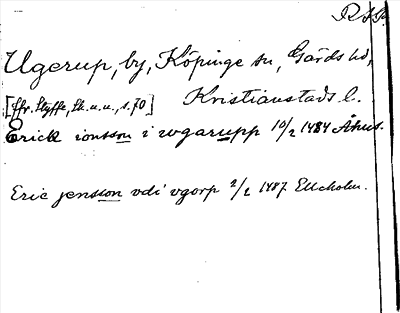 Ugerup, by, Köpinge sn, Gärds hd,
[Jfr. Styffe, Sk. u. u., s. 70] Kristianstads l.
Erick ionsson i wgarupp 10/2 1484 Åhus.
Eric jensson vdi vgorp 2/2 1487 Elleholm.